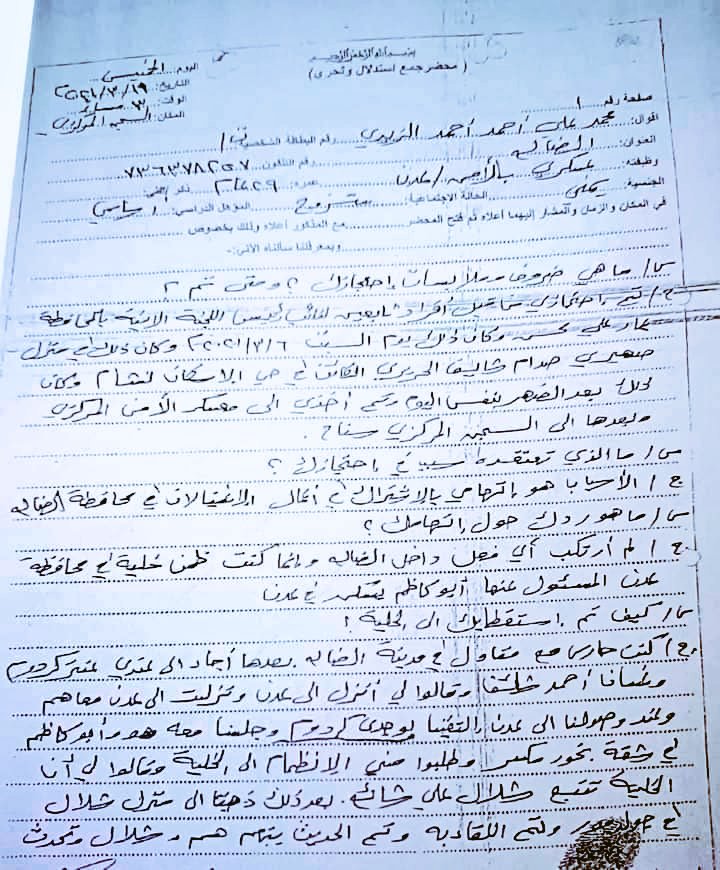 بسم الله الرحمن الرحيم
( محضر جمع استدلال وتحري )
اليوم: الخميس
التاريخ: ١٨/٣/٢٠٢١
الوقت: ٣ مساء
المكان: السجن المركزي
صفحة رقم ١
أقوال: محمد علي أحمد أحمد رقم البطاقة الشخصية
العنوان: الضالع رقم التلفون ٧٣٦٣٧٨٢٥٧
وظيفته: عسكري بالأمن / عدن عمره: ٢٩ عام ذكر/أنثى
الجنسية: يمني الحالة الاجتماعية: متزوج المؤهل الدراسي: أساسي
في المكان والزمان والمشار إليهما أعلاه تم فتح المحضر مع المذكور أعلاه وذلك بخصوص
وبمعرفتنا سألناه الآتي:-
س/ ما هي ظروف وملابسات احتجازك ؟ ومتى تم ؟
ج/ تم احتجازي من قبل أفراد تابعين لنائب رئيس اللجنة الأمنية بالمحافظة
علي محسن وكان ذلك يوم السبت ٦/٣/٢٠٢١م وكان ذلك في منزل
صهيري صدام شايف الحريري الكائن في حي الإسكان وكان
ذلك بعد الظهر نفس اليوم وتم أخذي الى معسكر الأمن المركزي
وبعدها الى السجن المركزي سناح.
س/ ما الذي تعتقده سببا في احتجازك ؟
ج/ الأسباب هو إتهامي بالإشتراك في أعمال الإغتيالات في محافظة الضالع
س/ ما هو ردك حول إتهامك ؟
ج/ لم أرتكب أي فعل داخل الضالع وإنما كنت ظمن خلية في محافظة
عدن المسئول عنها أبو كاظم في عدن
س/ كيف تم إستقطابك الى الخلية ؟
ج/ كنت حارس مع مقاول في مدينة الضالع بعدها أجاء الى عندي عنتر كردوم
أحمد وقالوا لي أنزل الى عدن ونزلت الى عدن معاهم
وعند وصولنا الى عدن إلتقينا بوجدي كردوم وجلسنا معه هو وأبو كاظم
في شقة بخور مكسر وطلبوا مني الإنظمام الى الخلية وقالوا لي أن
الخلية تتبع شلال علي شائع. بعد ذلك ذهبنا الى منزل شلال
في وتم اللقاء به وتم الحديث بينهم هم و شلال وتحدث